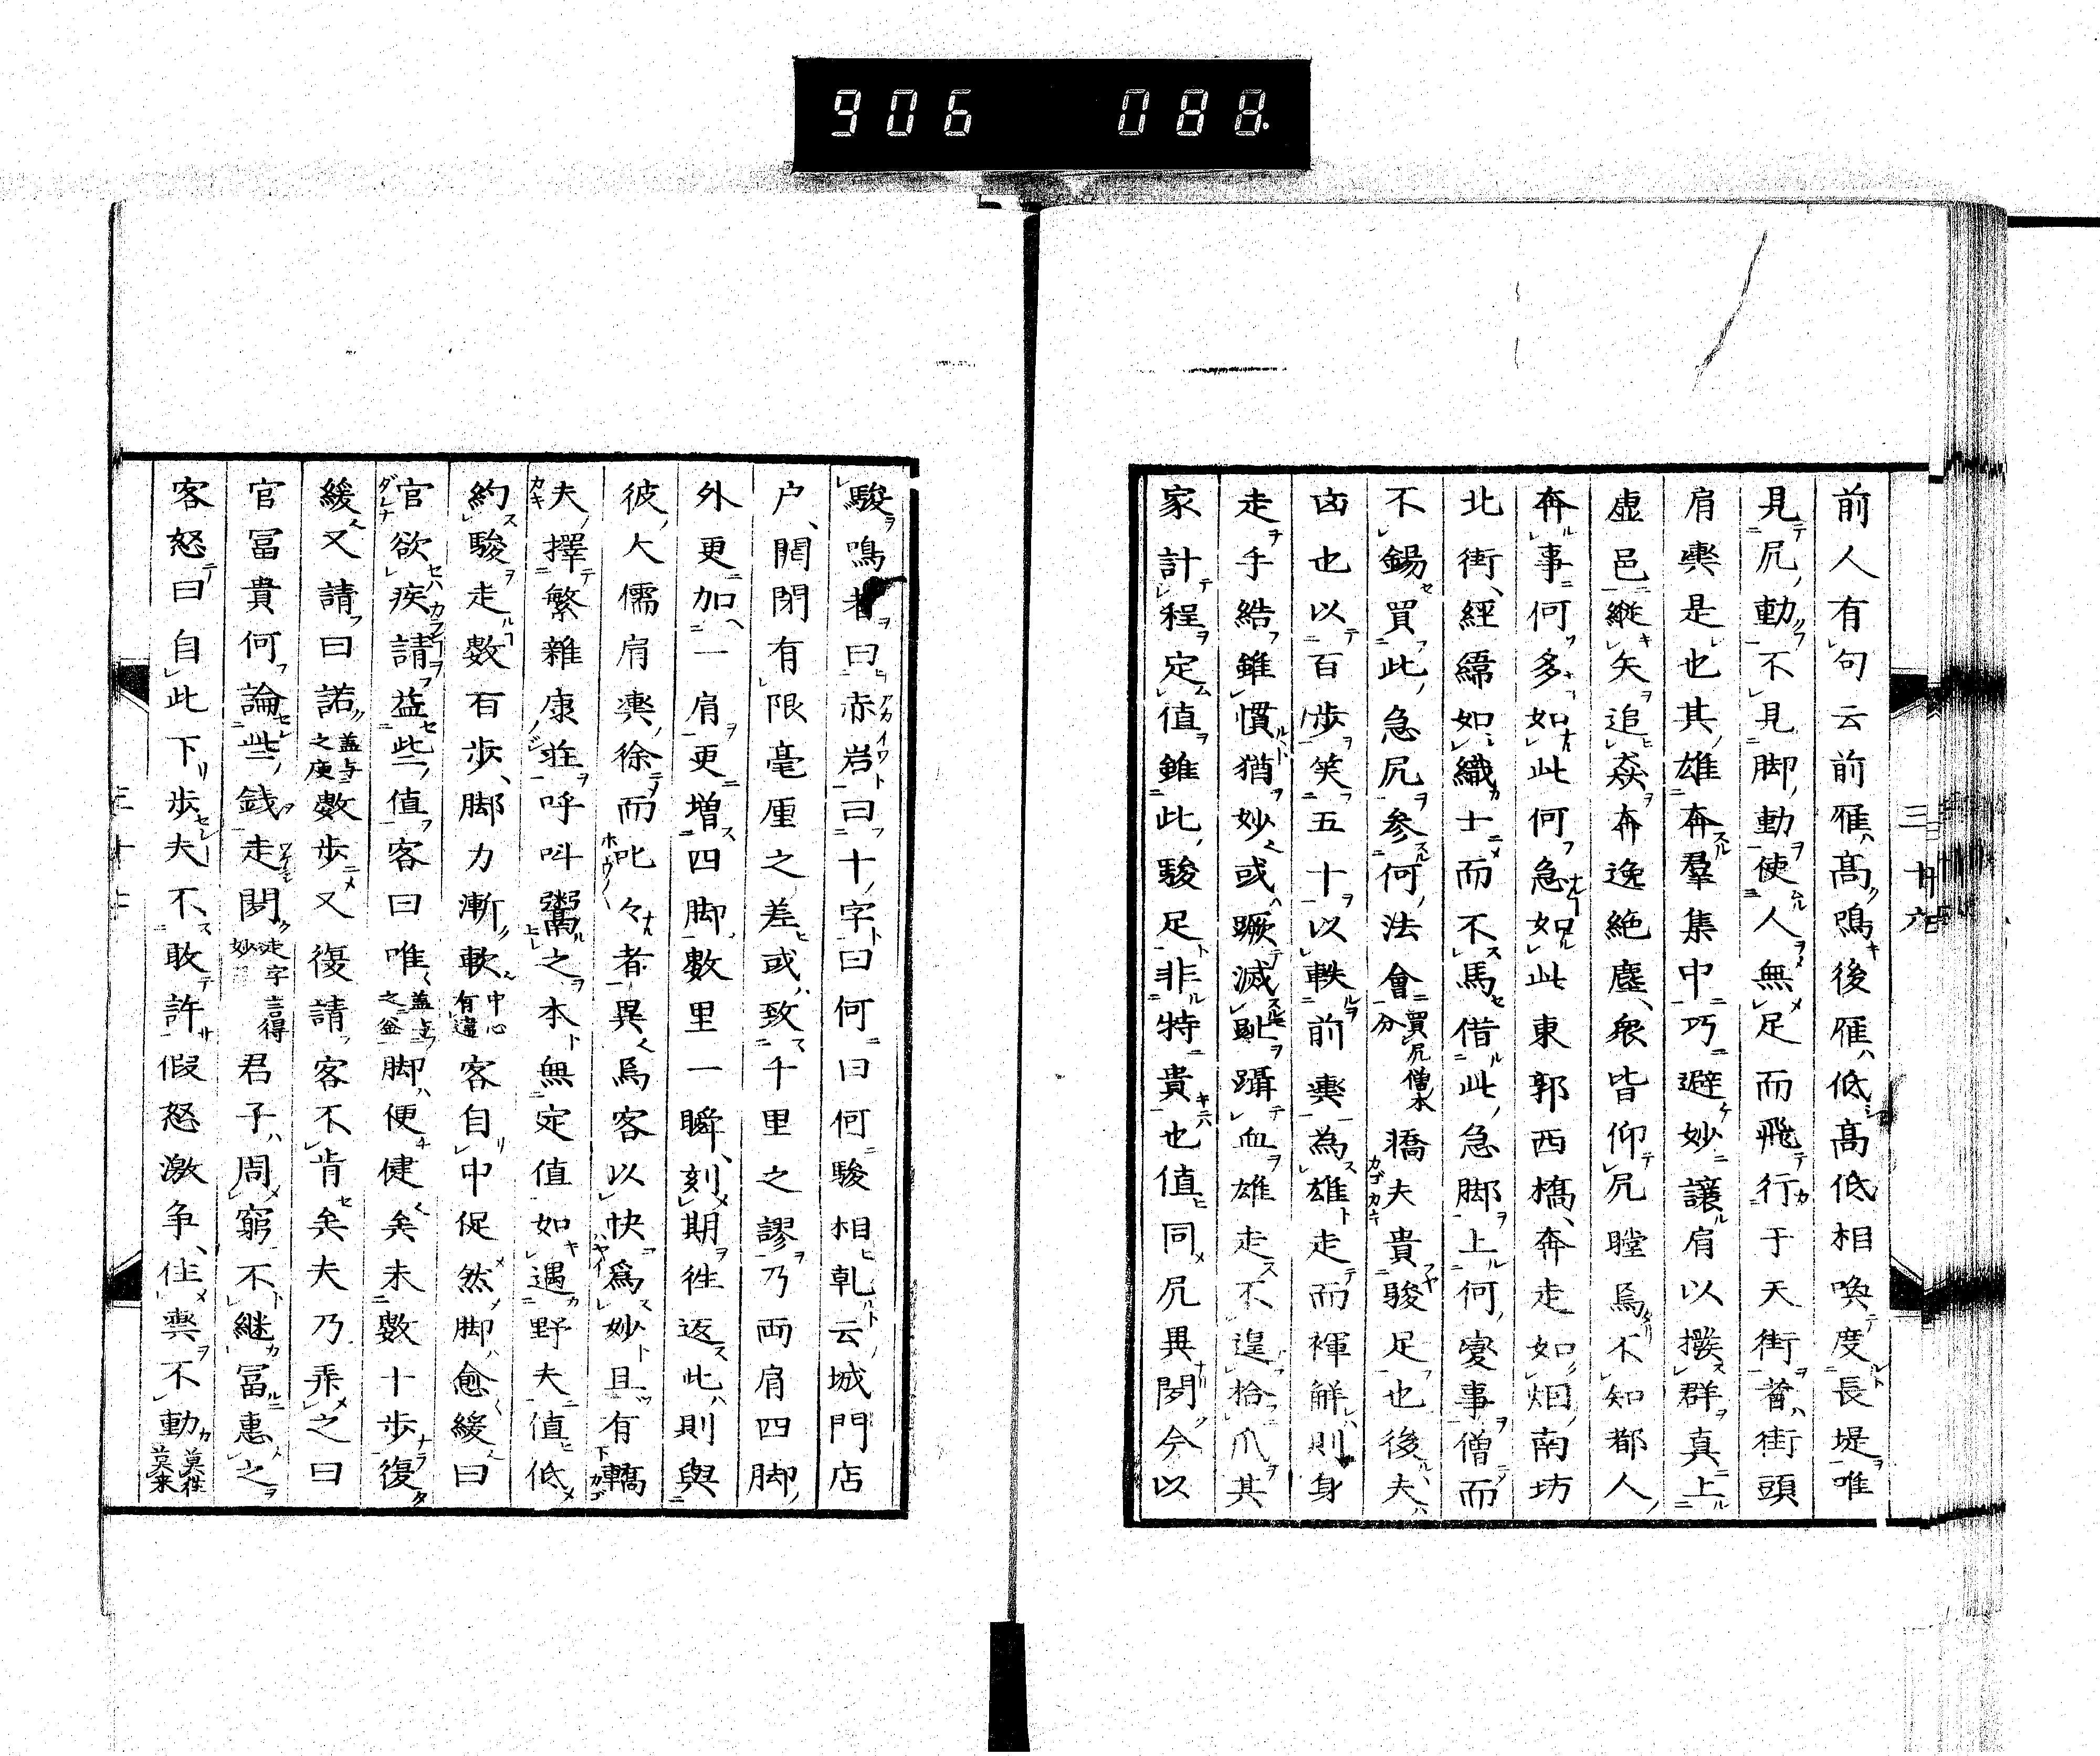 906 088
三十六
前人有句云前雁高鳴後雁低高低相喚度長堤唯
見尻動不見脚動使人無足而飛行于天街蒼街頭
肩輿是也其雄奔羣集中巧避妙讓肩以擬群真上
虛邑縱矢追猋奔逸絶塵衆皆仰尻瞠焉不知都人
奔事何多如此何急如此東郭西橋奔走如烟南坊
北街經緯如織士而不馬借此急脚上何変事僧而
不錫買此急尻參何法會買尻僧水分轎夫貴駿足也後夫
齿也以百歩笑五十以軼前輿為雄走而褌解則身
走手結雖慣猶妙或蹶滅趾躡血雄走不遑拾爪其
家計程定值雖此駿足非特貴也值同尻異閉今以
駿鳴者曰赤岩曰十字曰何曰何駿相軋云城門店
户開閉有限毫厘之差或致千里之謬乃両肩四脚
外更加一肩更増四脚數里一瞬刻期徃返此則與
彼大儒肩輿徐而叱々者異焉客以快為妙且有轎
夫擇繁雜康莊呼叫鬻之本無定值如遇野夫值低
約駿走數有歩脚力漸軟中心有違客自中促然脚愈緩曰
官欲疾請益些值客曰唯蓋与之釜脚便健矣未數十歩復
緩又請曰諾蓋与之庾數歩又復請客不肯矣夫乃乘之曰
官冨貴何論些錢走閉走字言得妙君子周窮不継冨惠之
客怒曰自此下歩夫不敢許假怒激争住輿不動莫徃莫来
三十七